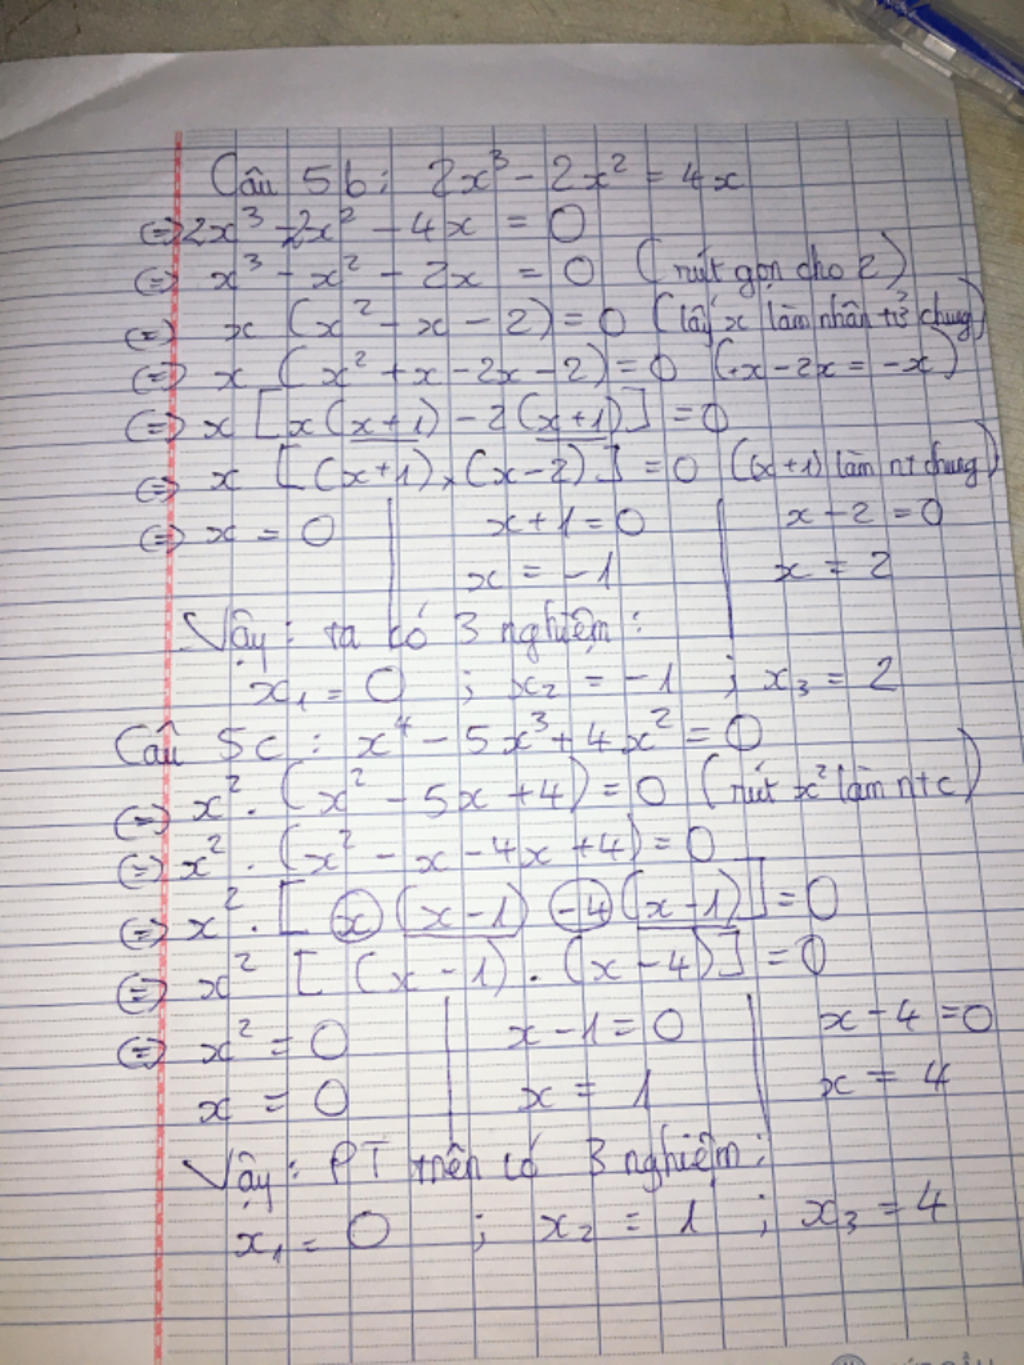 Câu 5b: 2x³ - 2x² = 4x
⇔ 2x³ - 2x² - 4x = 0
⇔ x³ - x² - 2x = 0 (rút gọn cho 2)
⇔ x (x² - x - 2) = 0 (lấy x làm nhân tử chung)
⇔ x (x² + x - 2x - 2) = 0 (+x - 2x = -x)
⇔ x [x(x+1) - 2(x+1)] = 0
⇔ x [(x+1) × (x-2)] = 0 ((x+1) làm nt chung)
⇔ x = 0 | x+1 = 0 | x - 2 = 0
x = -1 | x = 2
Vậy: ta có 3 nghiệm:
x₁ = 0 ; x₂ = -1 ; x₃ = 2
Câu 5c: x⁴ - 5x³ + 4x² = 0
⇔ x² . (x² - 5x + 4) = 0 (rút x² làm ntc)
⇔ x² . (x² - x - 4x + 4) = 0
⇔ x² . [x (x-1) -4 (x-1)] = 0
⇔ x² [(x-1) . (x-4)] = 0
⇔ x² = 0 | x - 1 = 0 | x - 4 = 0
x = 0 | x = 1 | x = 4
Vậy: PT trên có 3 nghiệm:
x₁ = 0 ; x₂ = 1 ; x₃ = 4